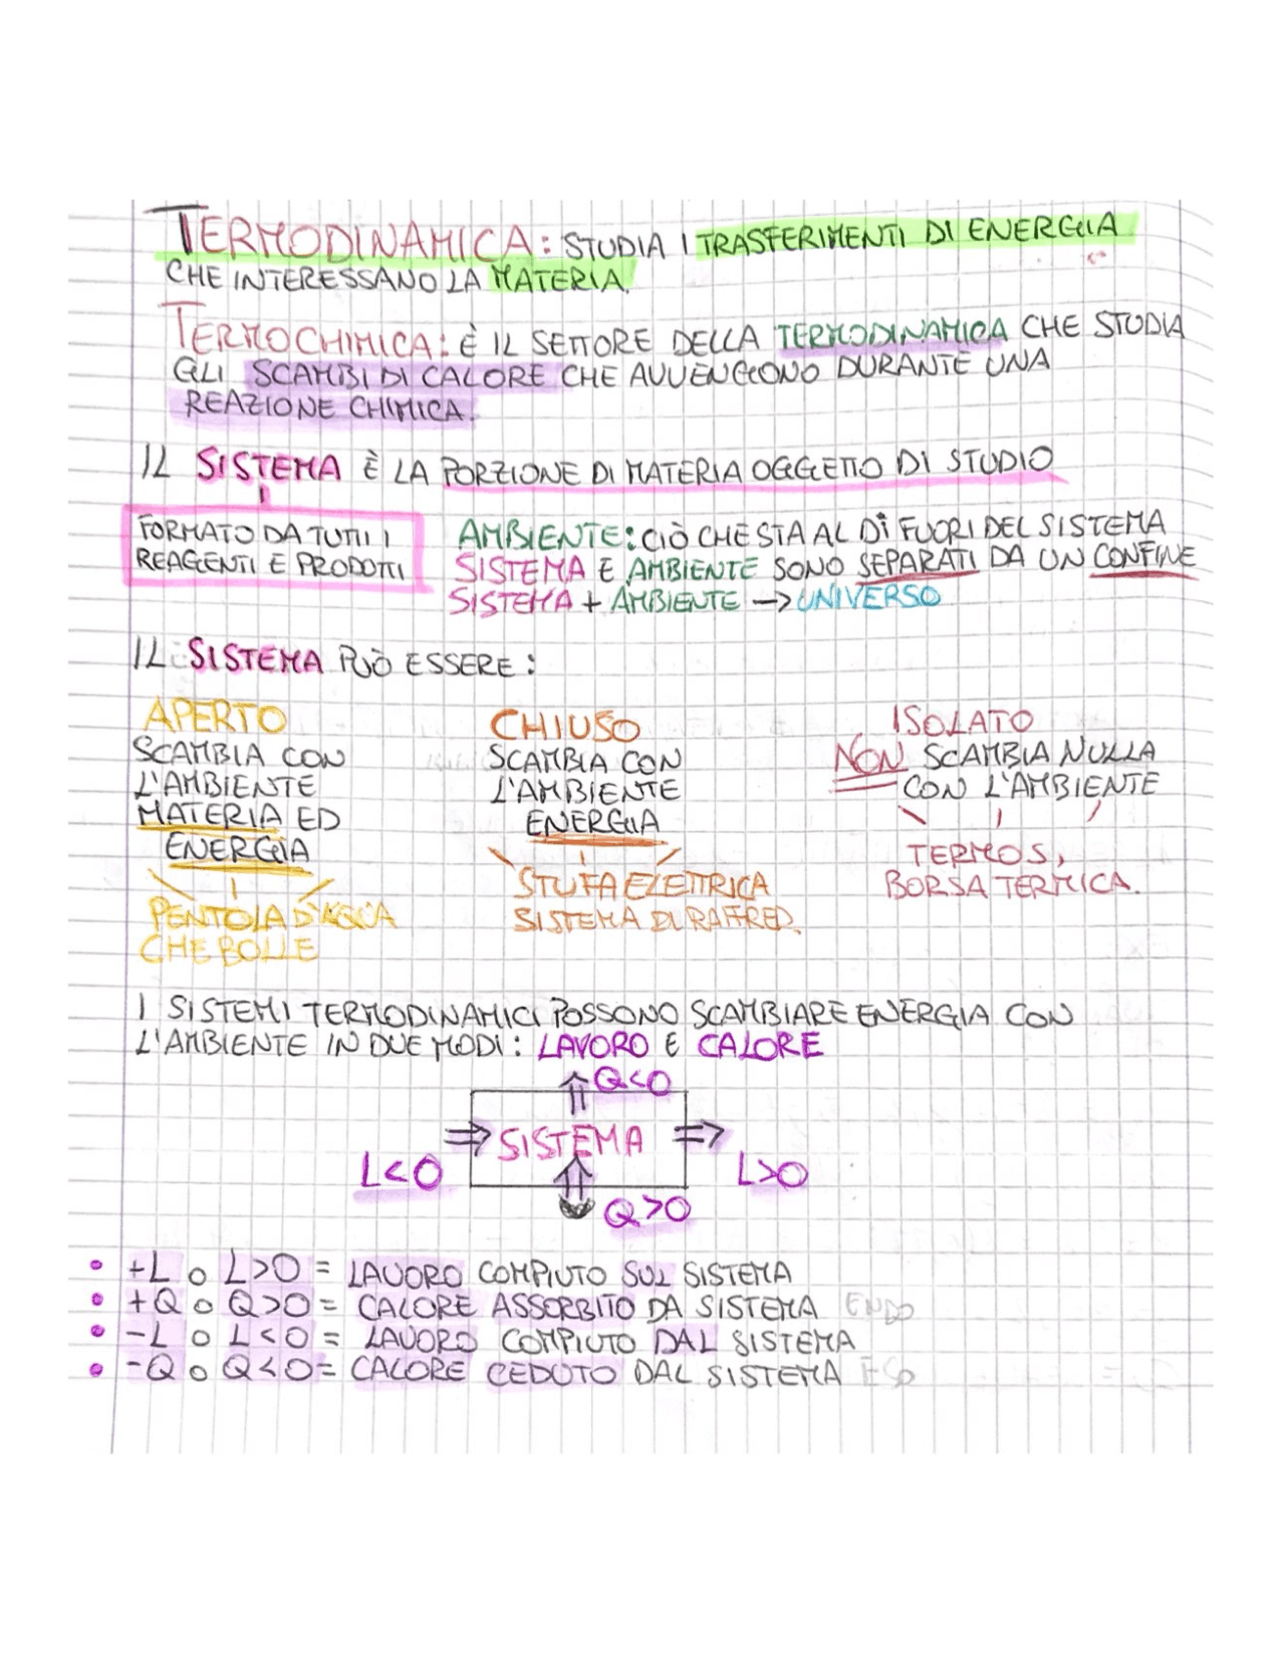 TERMODINAMICA: STUDIA I TRASFERIMENTI DI ENERGIA
CHE INTERESSANO LA MATERIA.
TERMOCHIMICA: È IL SETTORE DELLA TERMODINAMICA CHE STUDIA
GLI SCAMBI DI CALORE CHE AVVENGONO DURANTE UNA
REAZIONE CHIMICA.
IL SISTEMA È LA PORZIONE DI MATERIA OGGETTO DI STUDIO
FORMATO DA TUTTI I
REAGENTI E PRODOTTI
AMBIENTE: CIÒ CHE STA AL DÌ FUORI DEL SISTEMA
SISTEMA E AMBIENTE SONO SEPARATI DA UN CONFINE
SISTEMA + AMBIENTE → UNIVERSO
IL SISTEMA PUÒ ESSERE:
APERTO
SCAMBIA CON
L'AMBIENTE
MATERIA ED
ENERGIA
PENTOLA D'ACQUA
CHE BOLLE
CHIUSO
SCAMBIA CON
L'AMBIENTE
ENERGIA
STUFA ELETTRICA
SISTEMA DI RAFFRED.
ISOLATO
NON SCAMBIA NULLA
CON L'AMBIENTE
TERMOS,
BORSA TERMICA.
I SISTEMI TERMODINAMICI POSSONO SCAMBIARE ENERGIA CON
L'AMBIENTE IN DUE MODI: LAVORO E CALORE
Q<0
⇒ SISTEMA ⇒
L<0
L>0
Q>0
• +L o L>0 = LAVORO COMPIUTO SUL SISTEMA
• +Q o Q>0 = CALORE ASSORBITO DA SISTEMA ENDO
• -L o L<0 = LAVORO COMPIUTO DAL SISTEMA
• -Q o Q<0 = CALORE CEDUTO DAL SISTEMA ESO